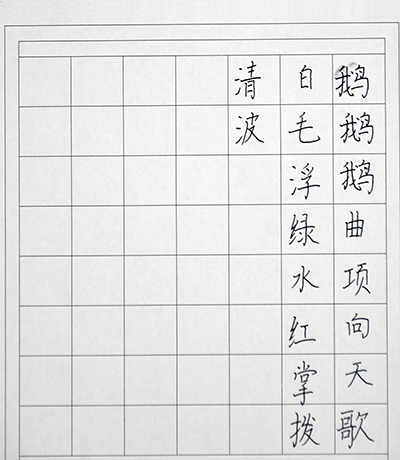 鹅鹅鹅曲项向天歌
白毛浮绿水红掌拨
清波